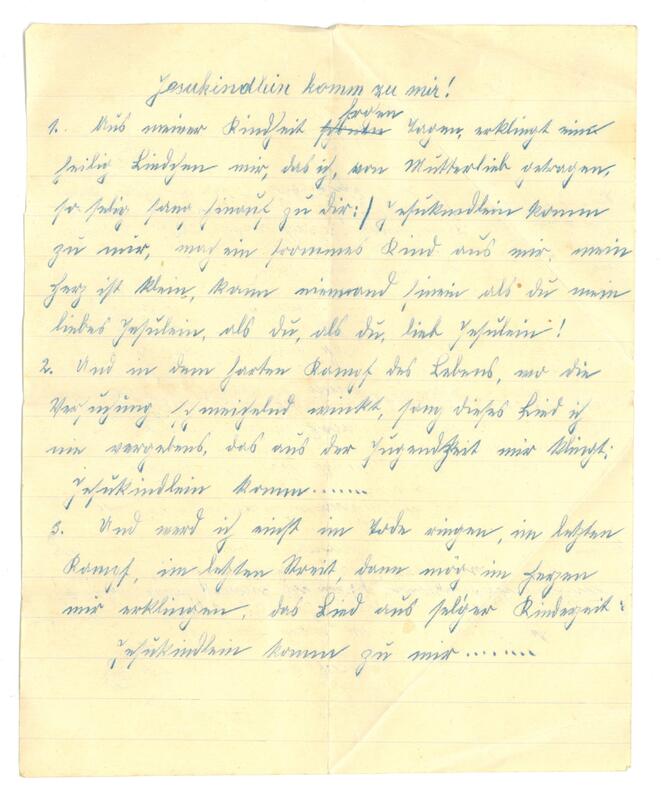 Jesukindlein komm zu mir!
frohen
1. Aus meiner Kindheit Tagen, erklingt ein
heilig Liedchen mir, das ich, von Mutterlieb getragen,
so selig sang hinauf zu dir:/ Jesukindlein komm
zu mir, mach ein frommes Kind aus mir, mein
Herz ist klein, kann niemand hinein als du mein
liebes Jesulein, als du, als du, lieb Jesulein!
2. Und in dem harten Kampf des Lebens, wo die
Versuchung schmeichelnd winkt, sang dieses Lied ich
nie vergebens, das aus der Jugendzeit mir klingt:
Jesukindlein komm.......
3. Und werd ich einst im Tode ringen, im letzten
Kampf, im letzten Streit, dann mög im Herzen
mir erklingen, das Lied aus sel'ger Kinderzeit:
Jesukindlein komm zu mir.......